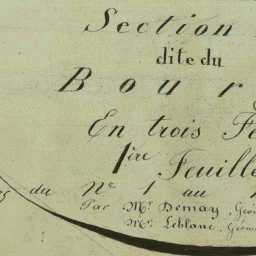 Section
dite du
Bour
En trois Fe
1ère Feuille
du No 1 au
Par Mr. Demay, Géo
Mr. Leblanc, Géom